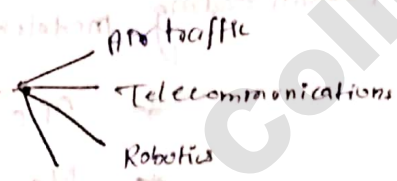 Air traffic
Telecommonications
Robotics